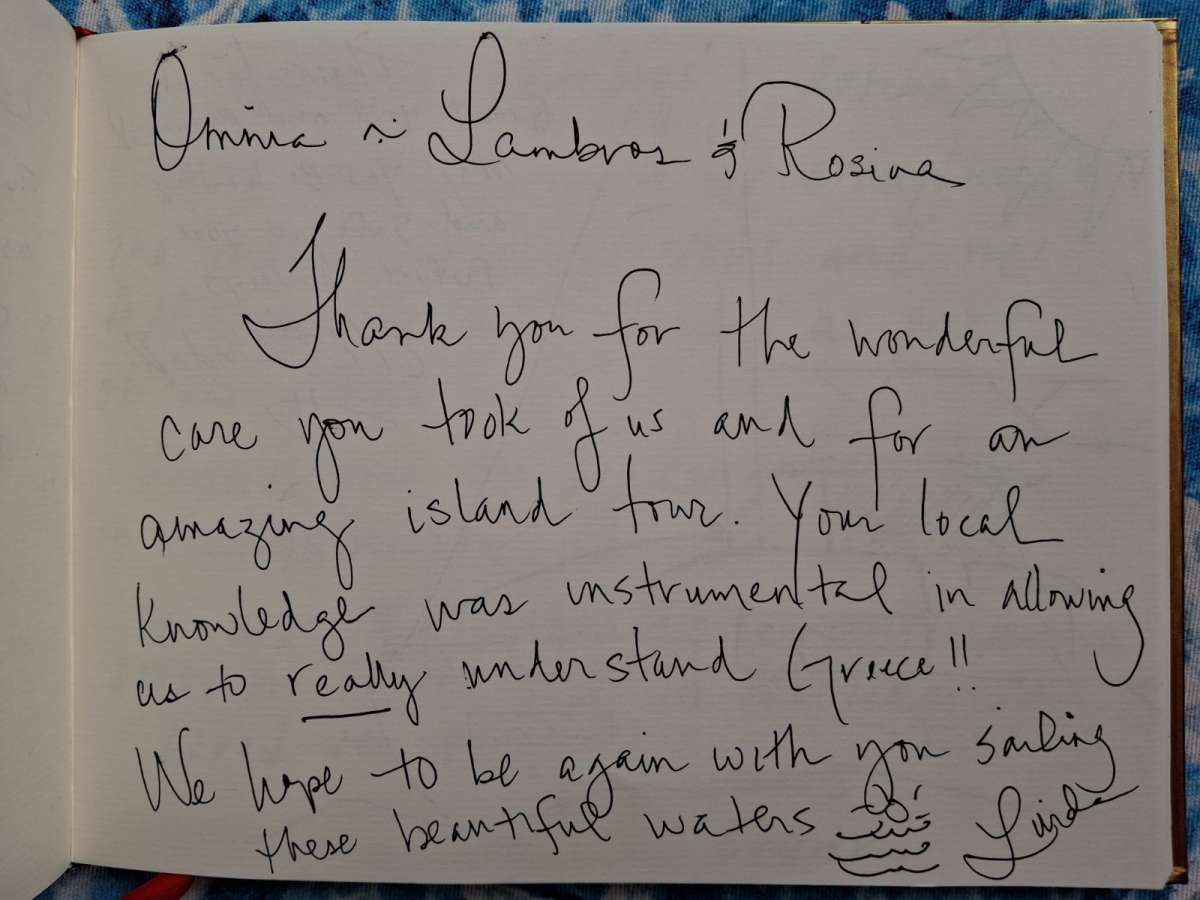 Omnia ~ Lambros & Rosina
Thank you for the wonderful
care you took of us and for an
amazing island tour. Your local
knowledge was instrumental in allowing
us to really understand Greece!!
We hope to be again with you sailing
these beautiful waters Linda